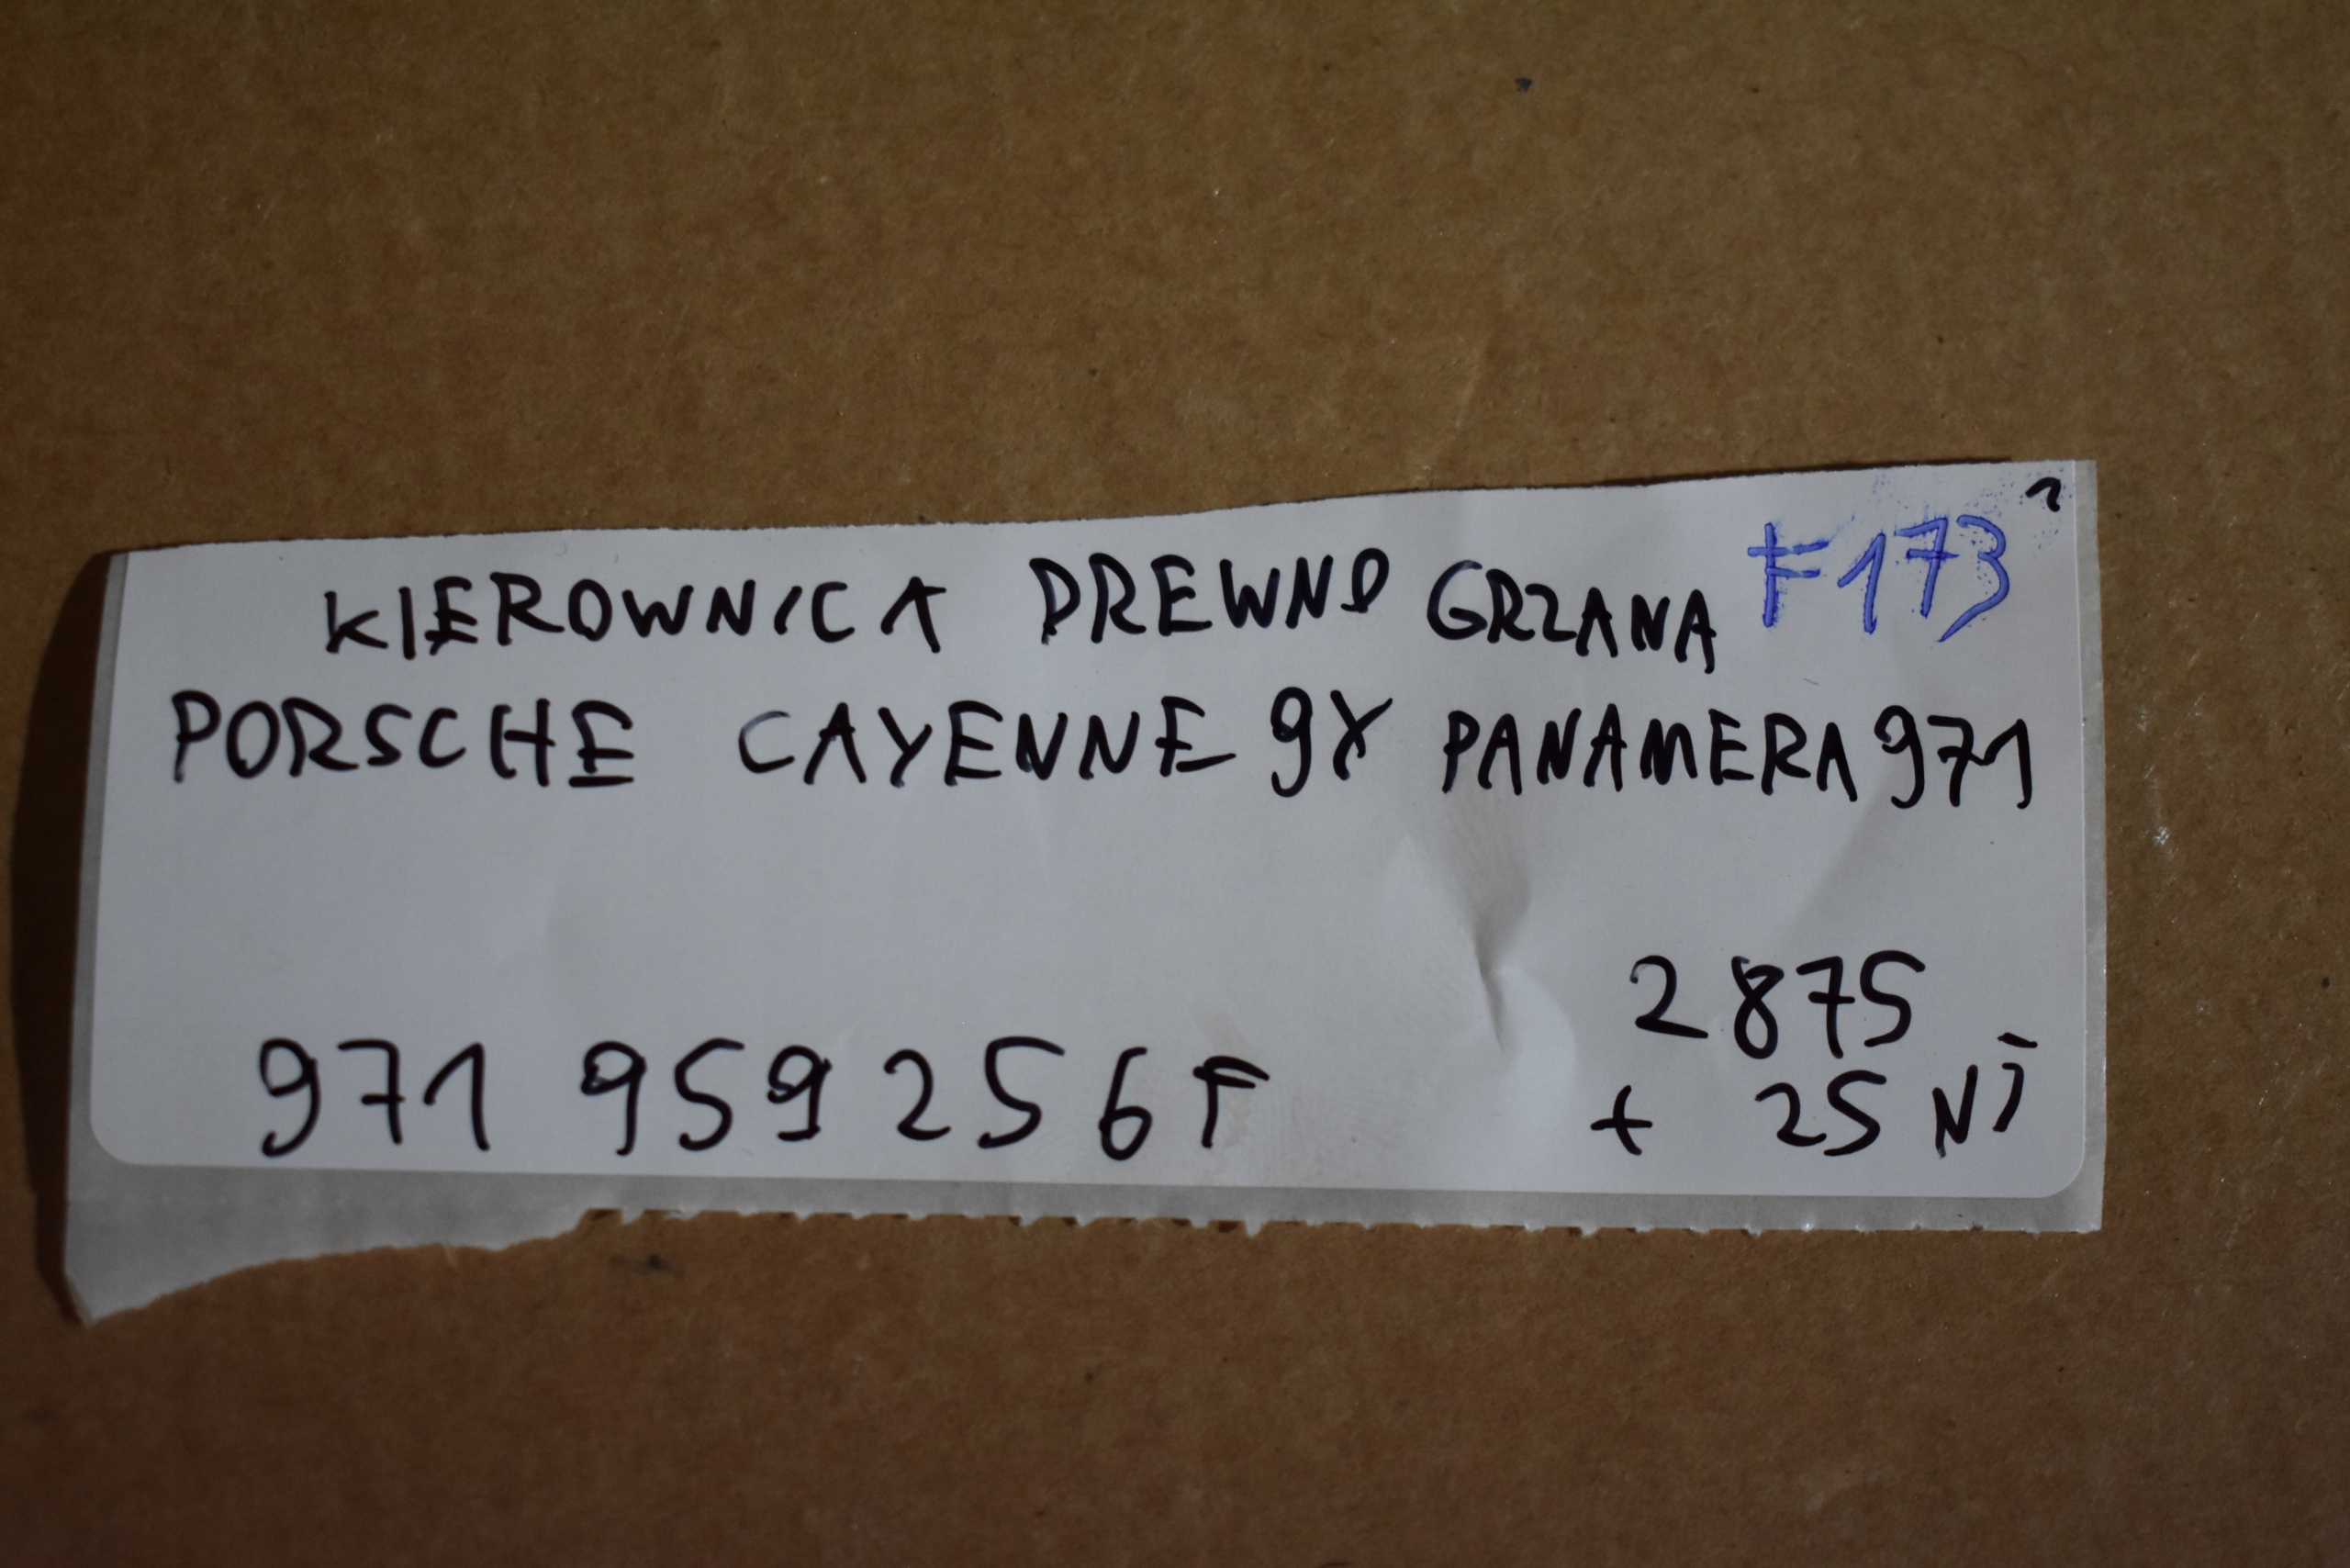 KIEROWNICA DREWNO GRZANA F173
PORSCHE CAYENNE 9Y PANAMERA 971
2875
971 959 256 F
+ 25 NJ